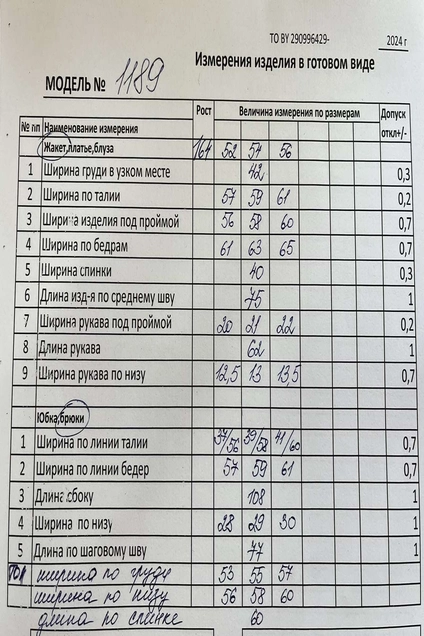 ТО BY 290996429- 2024 г
Измерения изделия в готовом виде
МОДЕЛЬ № 1189
№ пп Наименование измерения Рост Величина измерения по размерам Допуск откл+/-
Жакет,платье,блуза 164 52 54 56
1 Ширина груди в узком месте 42 0,3
2 Ширина по талии 57 59 61 0,2
3 Ширина изделия под проймой 56 58 60 0,7
4 Ширина по бедрам 61 63 65 0,7
5 Ширина спинки 40 0,3
6 Длина изд-я по среднему шву 75 1
7 Ширина рукава под проймой 20 21 22 0,2
8 Длина рукава 62 1
9 Ширина рукава по низу 12,5 13 13,5 0,7
Юбка,брюки
1 Ширина по линии талии 37/56 39/58 41/60 0,7
2 Ширина по линии бедер 57 59 61 0,7
3 Длина сбоку 108 1
4 Ширина по низу 28 29 30 1
5 Длина по шаговому шву 77 1
Топ ширина по груди 53 55 57
ширина по низу 56 58 60
длина по спинке 60